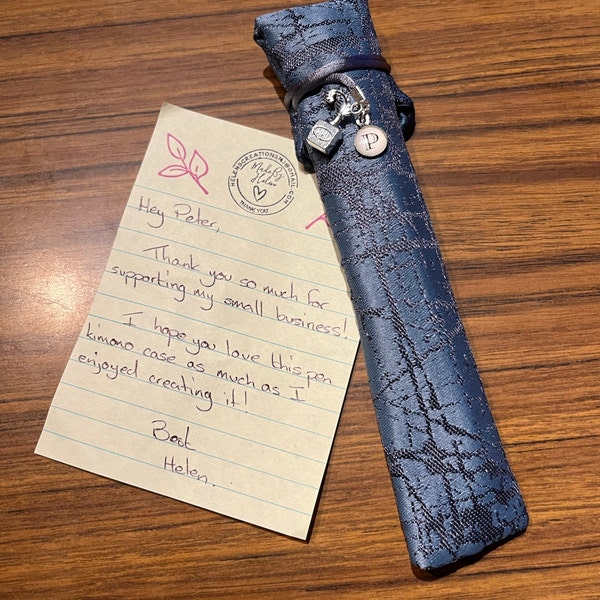 HELENSCREATIONSNJ@GMAIL.COM
Made By
Helen
THANK YOU
P
Hey Peter,
Thank you so much for
supporting my small business!
I hope you love this pen
kimono case as much as I
enjoyed creating it!
Best
Helen.